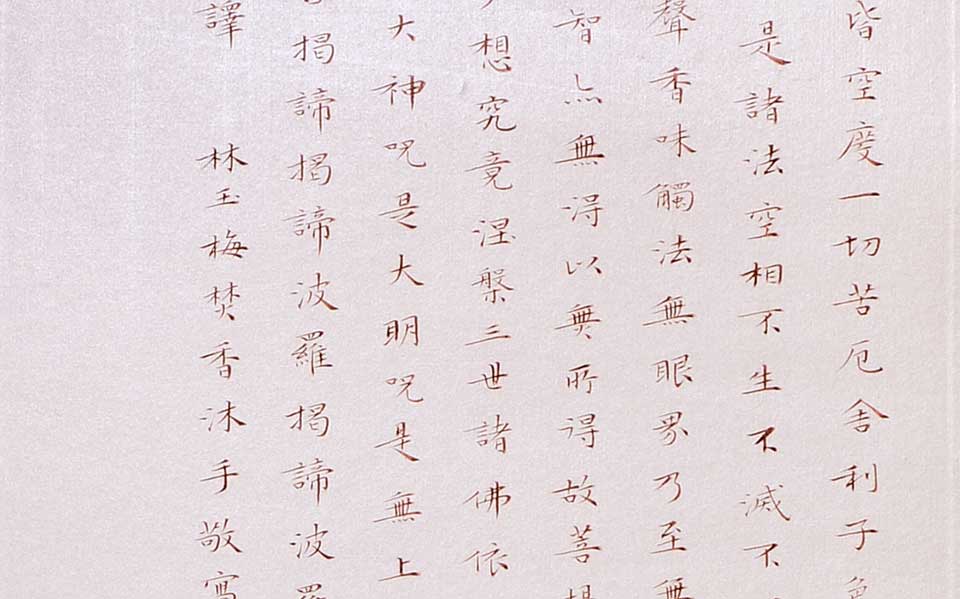 皆空度一切苦厄舍利子色
是諸法空相不生不滅不
聲香味觸法無眼界乃至無
智亦無得以無所得故菩提
想究竟涅槃三世諸佛依
大神咒是大明咒是無上
揭諦揭諦波羅揭諦波羅
譯 林玉梅焚香沐手敬寫